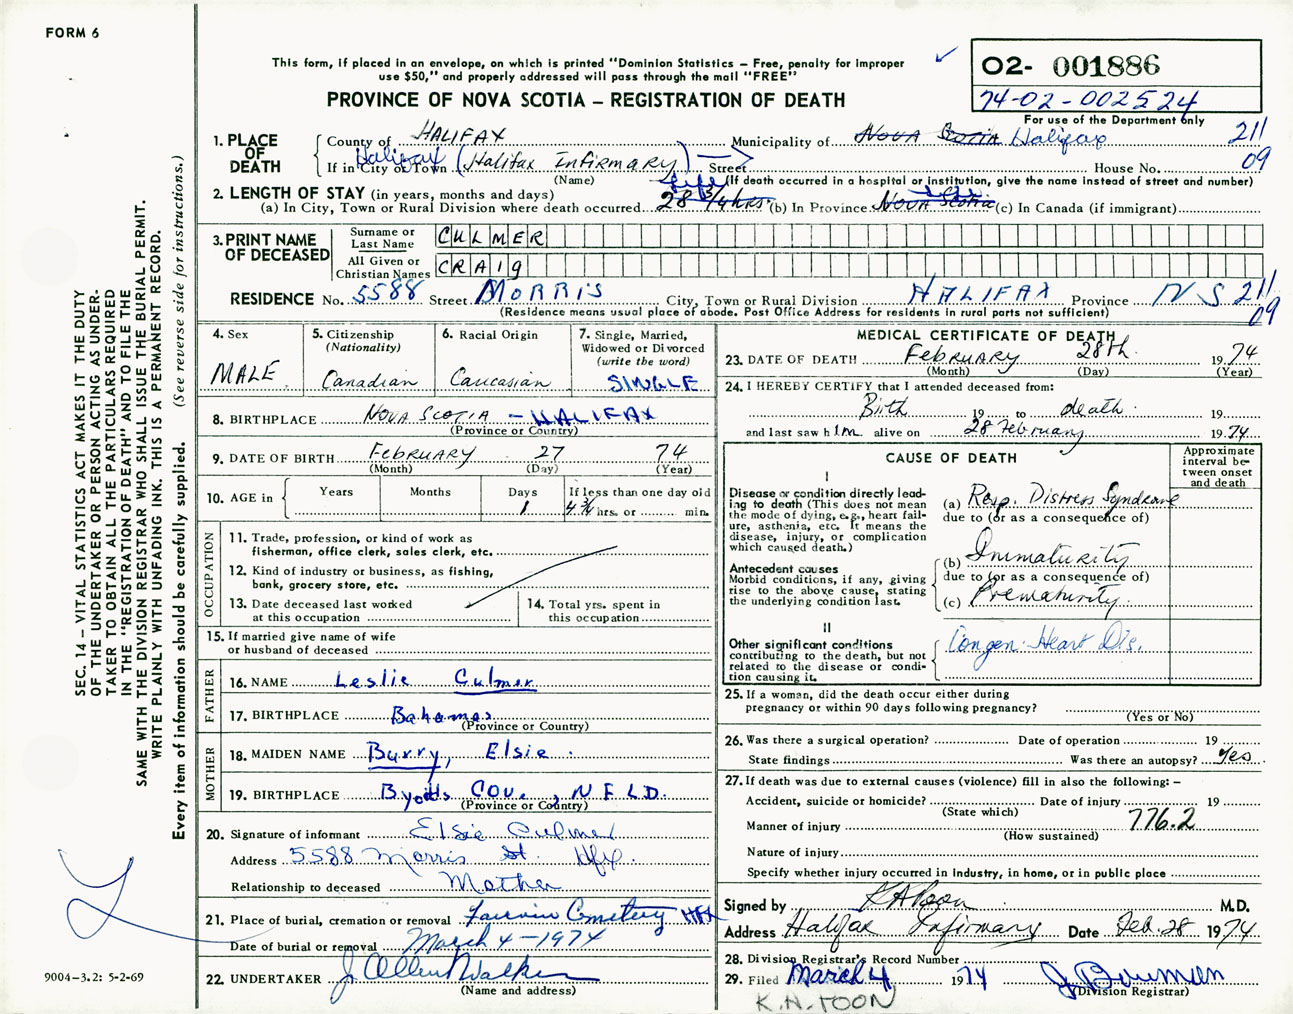 FORM 6
This form, if placed in an envelope, on which is printed "Dominion Statistics – Free, penalty for improper
use $50," and properly addressed will pass through the mail "FREE"
PROVINCE OF NOVA SCOTIA – REGISTRATION OF DEATH
O2- 001886
74-02-002524
For use of the Department only
211
09
1. PLACE OF DEATH
County of HALIFAX Municipality of Nova Scotia Halifax
If in City or Town Halifax (Halifax Infirmary) Street House No.
(Name) (If death occurred in a hospital or institution, give the name instead of street and number)
2. LENGTH OF STAY (in years, months and days)
(a) In City, Town or Rural Division where death occurred 28 3/4 hrs. life (b) In Province Nova Scotia life (c) In Canada (if immigrant)
3. PRINT NAME OF DECEASED
Surname or Last Name CULMER
All Given or Christian Names CRAIG
RESIDENCE No. 5588 Street MORRIS City, Town or Rural Division HALIFAX Province NS 211
09
(Residence means usual place of abode. Post Office Address for residents in rural parts not sufficient)
4. Sex MALE
5. Citizenship (Nationality) Canadian
6. Racial Origin Caucasian
7. Single, Married, Widowed or Divorced (write the word) SINGLE
8. BIRTHPLACE NOVA SCOTIA – HALIFAX
(Province or Country)
9. DATE OF BIRTH February 27 74
(Month) (Day) (Year)
10. AGE in Years Months Days 1 If less than one day old 4 3/4 hrs. or min.
OCCUPATION
11. Trade, profession, or kind of work as
fisherman, office clerk, sales clerk, etc.
12. Kind of industry or business, as fishing,
bank, grocery store, etc.
13. Date deceased last worked
at this occupation
14. Total yrs. spent in
this occupation
15. If married give name of wife
or husband of deceased
FATHER
16. NAME Leslie Culmer
17. BIRTHPLACE Bahamas
(Province or Country)
MOTHER
18. MAIDEN NAME Burry, Elsie
19. BIRTHPLACE COVE, NFLD.
(Province or Country)
20. Signature of informant Elsie Culmer
Address 5588 Morris St. Hfx.
Relationship to deceased Mother
21. Place of burial, cremation or removal Fairview Cemetery HFX
Date of burial or removal March 4 – 1974
22. UNDERTAKER J. Allen Walker
(Name and address)
MEDICAL CERTIFICATE OF DEATH
23. DATE OF DEATH February 28th 1974
(Month) (Day) (Year)
24. I HEREBY CERTIFY that I attended deceased from:
Birth 19 to death 19
and last saw him alive on 28 February 1974
CAUSE OF DEATH
Approximate interval between onset and death
I
Disease or condition directly leading to death (This does not mean the mode of dying, e.g., heart failure, asthenia, etc. It means the disease, injury, or complication which caused death.)
(a) Resp. Distress Syndrome
due to (or as a consequence of)
Antecedent causes
Morbid conditions, if any, giving rise to the above cause, stating the underlying condition last.
(b) Immaturity
due to (or as a consequence of)
(c) Prematurity
II
Other significant conditions
contributing to the death, but not related to the disease or condition causing it.
Congen. Heart Dis.
25. If a woman, did the death occur either during
pregnancy or within 90 days following pregnancy?
(Yes or No)
26. Was there a surgical operation? Date of operation 19
State findings Was there an autopsy? Yes
27. If death was due to external causes (violence) fill in also the following: –
Accident, suicide or homicide? Date of injury 19
(State which)
Manner of injury 776.2
(How sustained)
Nature of injury
Specify whether injury occurred in industry, in home, or in public place
Signed by K A Toon M.D.
Address Halifax Infirmary Date Feb. 28 1974
28. Division Registrar's Record Number
29. Filed March 4 1974 J Bowman
(Division Registrar)
K.A. TOON
SEC. 14 – VITAL STATISTICS ACT MAKES IT THE DUTY
OF THE UNDERTAKER OR PERSON ACTING AS UNDER-
TAKER TO OBTAIN ALL THE PARTICULARS REQUIRED
IN THE "REGISTRATION OF DEATH" AND TO FILE THE
SAME WITH THE DIVISION REGISTRAR WHO SHALL ISSUE THE BURIAL PERMIT.
WRITE PLAINLY WITH UNFADING INK. THIS IS A PERMANENT RECORD.
Every item of information should be carefully supplied. (See reverse side for instructions.)
9004–3.2: 5-2-69